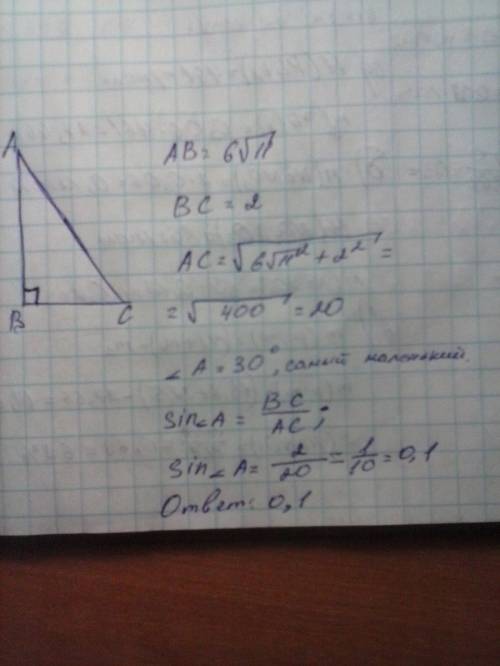 A
B
C
AB = 6√11
BC = 2
AC = √6√11² + 2² =
= √400 = 20
∠A = 30°, самый маленький.
Sin∠A = BC/AC;
Sin∠A = 2/20 = 1/10 = 0,1
Ответ: 0,1